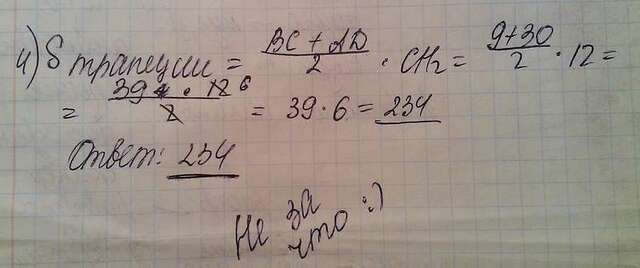 4) S трапеции = BC + AD / 2 · CH₂ = 9+30 / 2 · 12 =
= 39 · 12 6 / 2 = 39 · 6 = 234
Ответ: 234
Не за
что :)